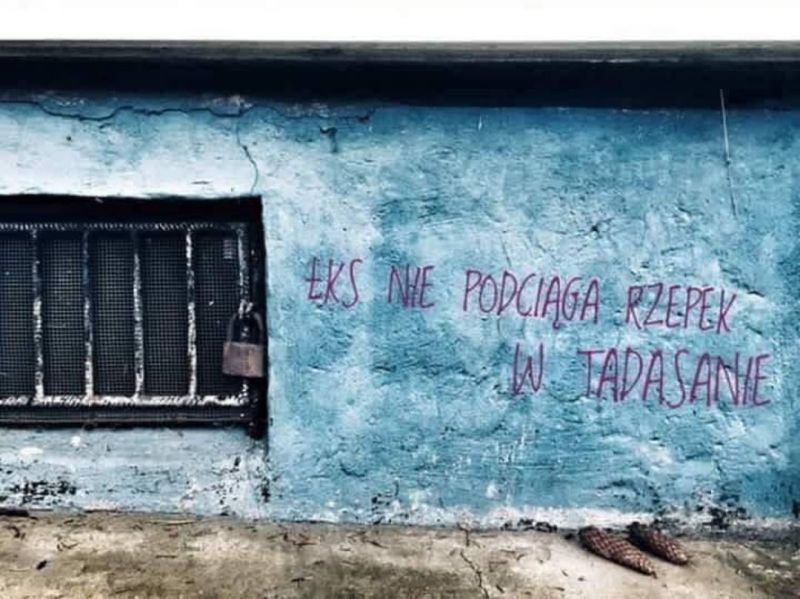 ŁKS NIE PODCIĄGA RZEPEK
W TADASANIE